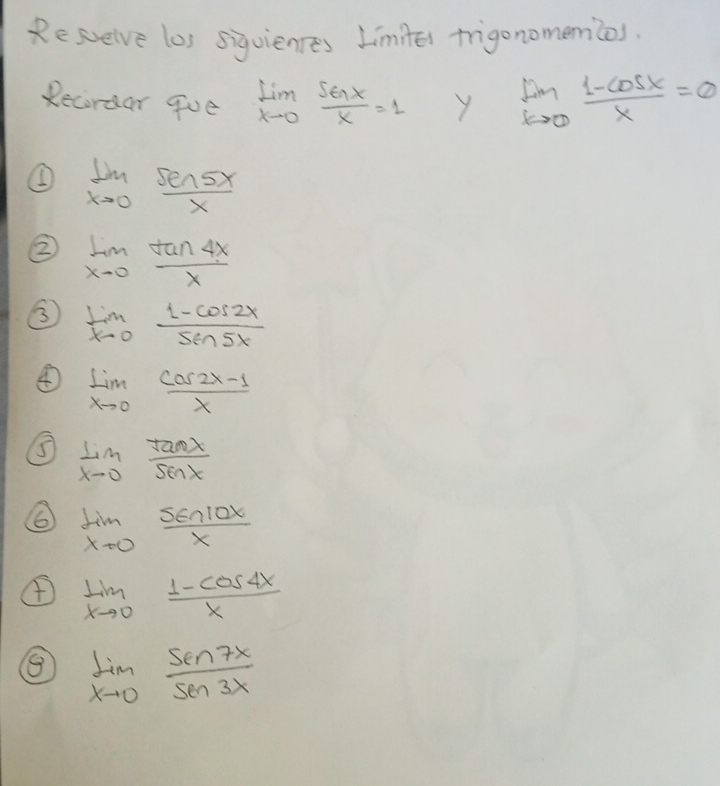 Resuelve los siguientes Límites trigonometricos.
Recordar que Lim x→0 senx/x = 1 y Lim x→0 1-cosx/x = 0
① Lim x→0 sen5x/x
② Lim x→0 tan 4x/x
③ Lim x→0 1-cos2x/sen5x
④ Lim x→0 cos2x-1/x
⑤ Lim x→0 tanx/senx
⑥ Lim x→0 sen10x/x
⑦ Lim x→0 1-cos4x/x
⑧ Lim x→0 sen7x/sen 3x